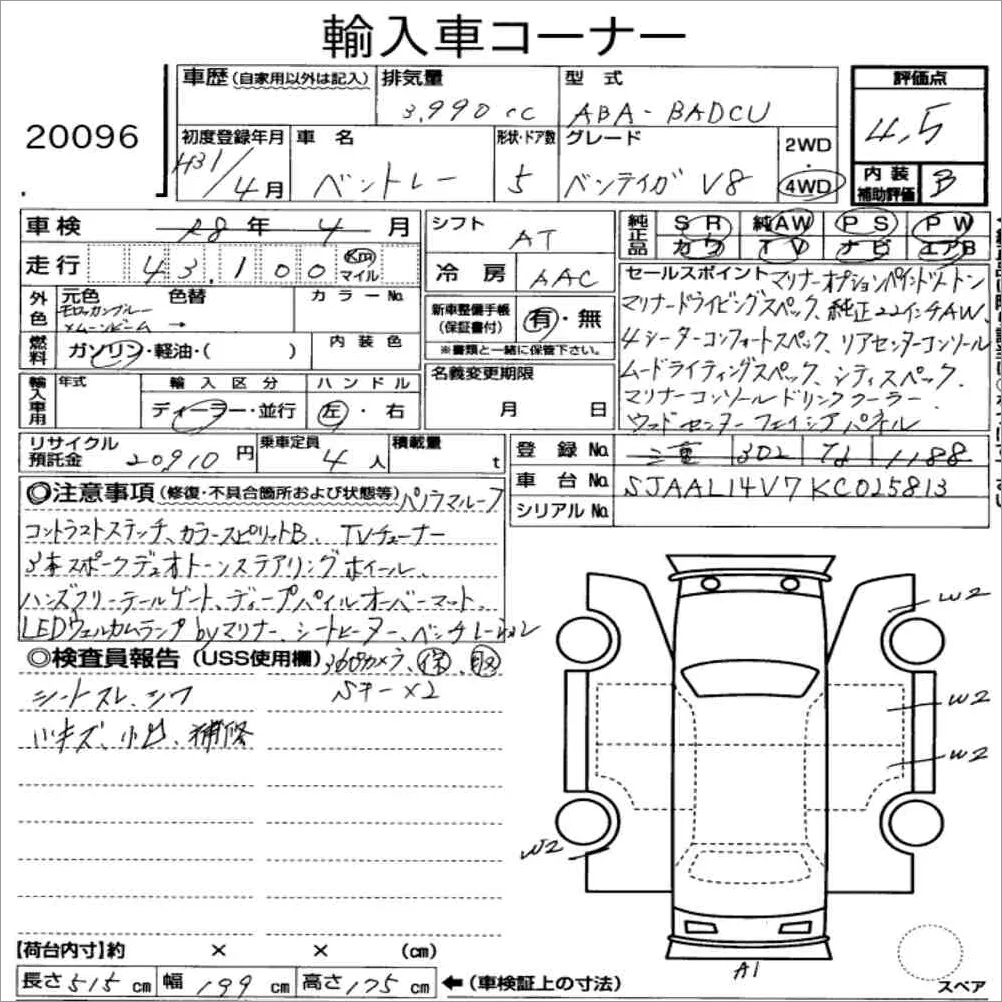 輸入車コーナー
20096
車歴(自家用以外は記入)
排気量 3,990cc
型式 ABA-BADCU
評価点 4.5
初度登録年月 H31/4月
車名 ベントレー
形状・ドア数 5
グレード ベンテイガ V8
2WD・4WD
内装補助評価 B
車検 28年 4月
シフト AT
純正品 SR 純AW PS PW
カワ TV ナビ エアB
走行 43,100 Km マイル
冷房 AAC
セールスポイント マリナーオプションペイントツートン
マリナードライビングスペック、純正22インチAW、
4シーターコンフォートスペック、リアセンターコンソール
ムードライティングスペック、シティスペック、
マリナーコンソールドリンククーラー
ウッドセンターフェイシアパネル
外色 元色 色替 カラーNo.
モロッカンブルー
×ムーンビーム →
新車整備手帳(保証書付) 有・無
※書類と一緒に保管下さい。
燃料 ガソリン・軽油・( ) 内装色
輸入車用 年式 輸入区分 ハンドル
ディーラー・並行 左・右
名義変更期限
月 日
リサイクル預託金 20910円 乗車定員 4人 積載量 t
登録No. 三重 302 1188
車台No. SJAAL14V7KC025813
シリアルNo.
◎注意事項(修復・不具合箇所および状態等) パノラマルーフ
コントラストステッチ、カラースピリットB、TVチューナー
3本スポークデュオトーンステアリングホイール、
ハンズフリーテールゲート、ディープパイルオーバーマット、
LEDウェルカムランプbyマリナー、シートヒーター、ベンチレーション
◎検査員報告(USS使用欄) 360°カメラ、保、取
シートスレ、シワ Sキー×2
小キズ、小凹、補修
W2
W2
W2
W2
A1
【荷台内寸】約 × × (cm)
長さ515cm 幅199cm 高さ175cm ←(車検証上の寸法)
スペア